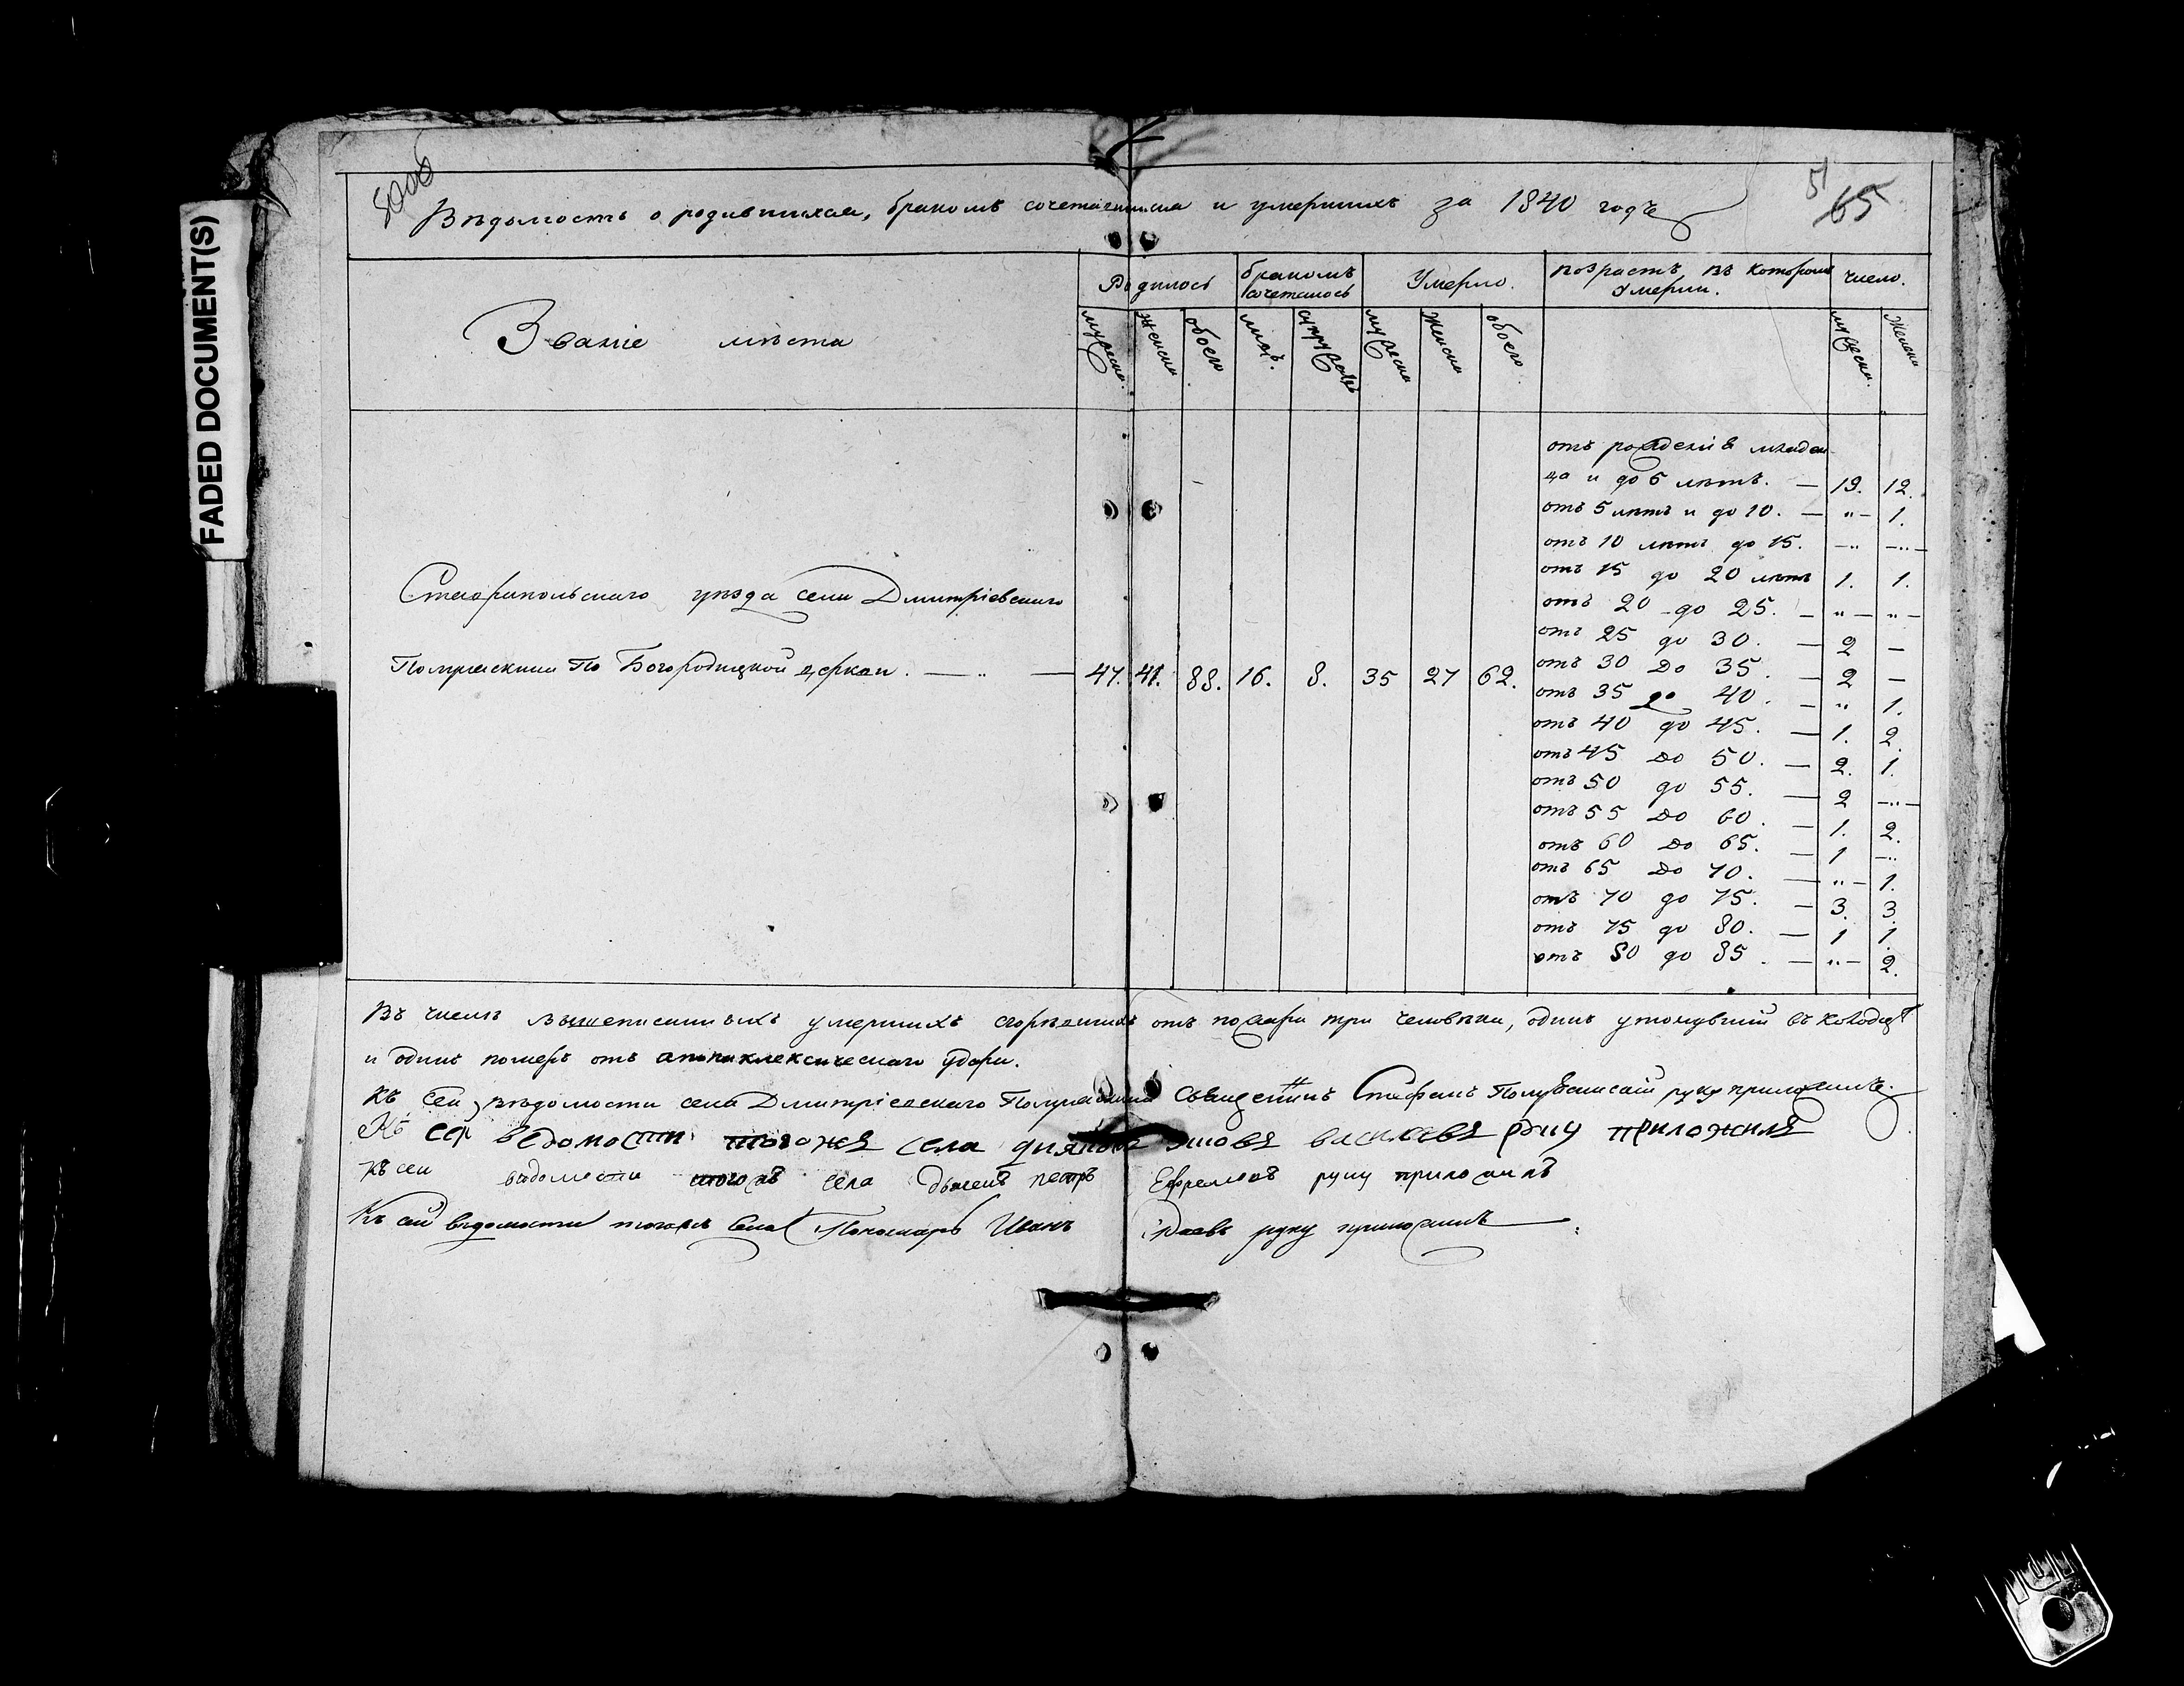 FADED DOCUMENT(S)
Вѣдомость о родившихся, бракомъ сочетавшихся и умершихъ за 1840 годъ
51
65
Званіе мѣста
Родилось
бракомъ сочеталось
Умерло.
возрастъ, въ которомъ умерли.
число.
мужеска. женска обоего
муж. супружествъ
мужеска женска обоего.
мужеска. женска
отъ рожденія младен-
ца и до 5 лѣтъ. — 19. 12.
отъ 5 лѣтъ и до 10. — „ — 1.
отъ 10 лѣтъ до 15. — „ — „ —
отъ 15 до 20 лѣтъ 1. 1.
отъ 20 до 25. — „ — „ —
отъ 25 до 30. — 2 —
отъ 30 до 35. — 2 —
отъ 35 до 40. — „ 1.
отъ 40 до 45. — 1. 2.
отъ 45 до 50. — 2. 1.
отъ 50 до 55. — 2 — „ —
отъ 55 до 60. — 1. 2.
отъ 60 до 65. — 1 — „
отъ 65 до 70. — „ — 1.
отъ 70 до 75. — 3. 3.
отъ 75 до 80. — 1 1.
отъ 80 до 85. — „ — 2.
Ставрапольскаго уѣзда села Дмитріевскаго
по Богородицкой церкви. — „ — 47. 41. 88. 16. 8. 35 27 62.
Въ числѣ вышеписанныхъ умершихъ сгорѣвшихъ отъ пожара три человѣка, одинъ утонувший въ колодцѣ
и одинъ померъ отъ апопклексическаго удара.
Къ сей вѣдомости села Дмитріевскаго Священникъ Стефанъ руку приложилъ.
Къ сей ведомости тогожъ села васильевъ руку приложилъ
Къ сей вѣдомости тогожъ села дьячекъ петръ Ефремовъ руку приложилъ
Къ сей вѣдомости тогожъ села Пономарь Иванъ руку приложилъ